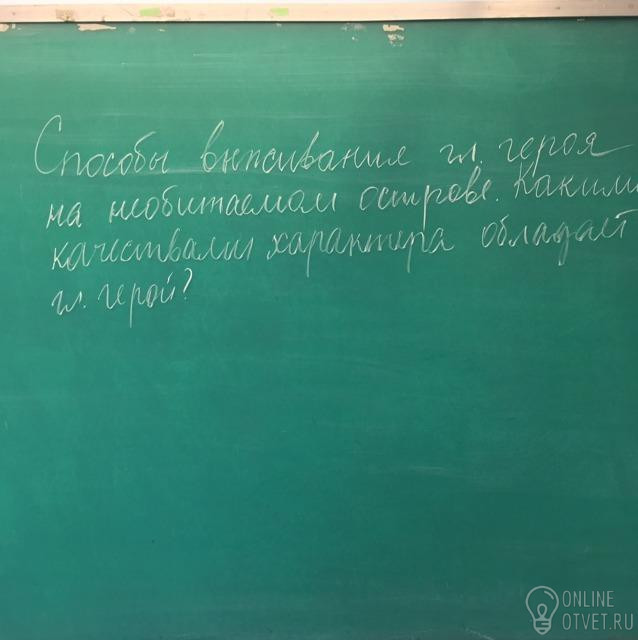 Способы выживания гл. героя
на необитаемом острове. Какими
качествами характера обладает
гл. герой?
ONLINE
OTVET.RU